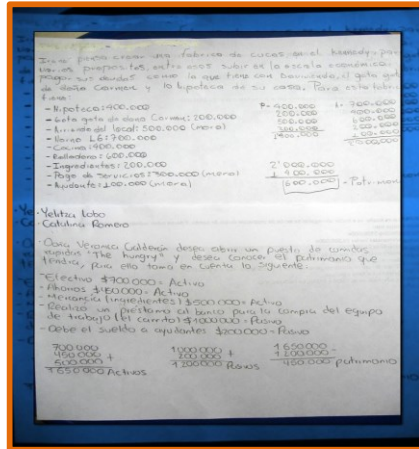 fábrica de cucas en el kennedy, por
varios propositos, entre esos subir en la escala económica,
pagar sus deudas como la que tiene con Davivienda, el gota gota
de doña Carmen y la hipoteca de su casa. Para esta
- Hipoteca: 400.000
- Gota gota de doña Carmen: 200.000
- Arriendo del local: 500.000 (mora)
- Horno LG: 700.000
- Cocina: 400.000
- Relledora: 600.000
- Ingredientes: 200.000
- Pago de servicios: 300.000 (mora)
- Ayudante: 100.000 (mora)
P- 400.000
200.000
500.000
2'000.000
600.000 - Patrimonio
- Yelitza Lobo
- Catalina Romero
- Clara Veronica Calderón desea abrir un puesto de comidas
rapidas "The hungry" y desea conocer el patrimonio que
tendra, para ello toma en cuenta lo siguente.
- Efectivo $700000 = Activo
- Ahorros $450000 = Activo
- Mercancia (ingredientes) $500000 = Activo
- Realizo un prestamo al banco para la compra del equipo
de trabajo (el carrito) $1000000 = Pasivo
- Debe el sueldo a ayudantes $200000 = Pasivo
700000 1000000 + 1650000 -
450000 + 200000 1200000
500000 1200000 Pasivos 450.000 patrimonio
1650000 Activos